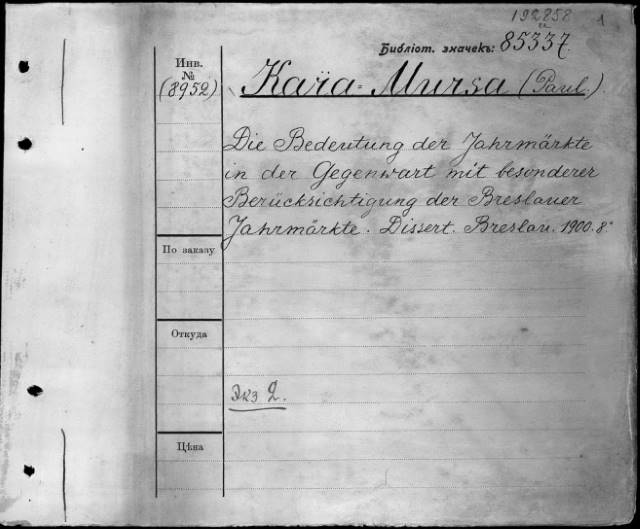 192858
1
Библіот. значекъ: 85337
Инв.
№
(8952)
Kaïa-Mursa (Paul.)
Die Bedeutung der Jahrmärkte
in der Gegenwart mit besonderer
Berücksichtigung der Breslauer
Jahrmärkte. Dissert. Breslau. 1900. 8°
По заказу
Откуда
Экз 2.
Цѣна